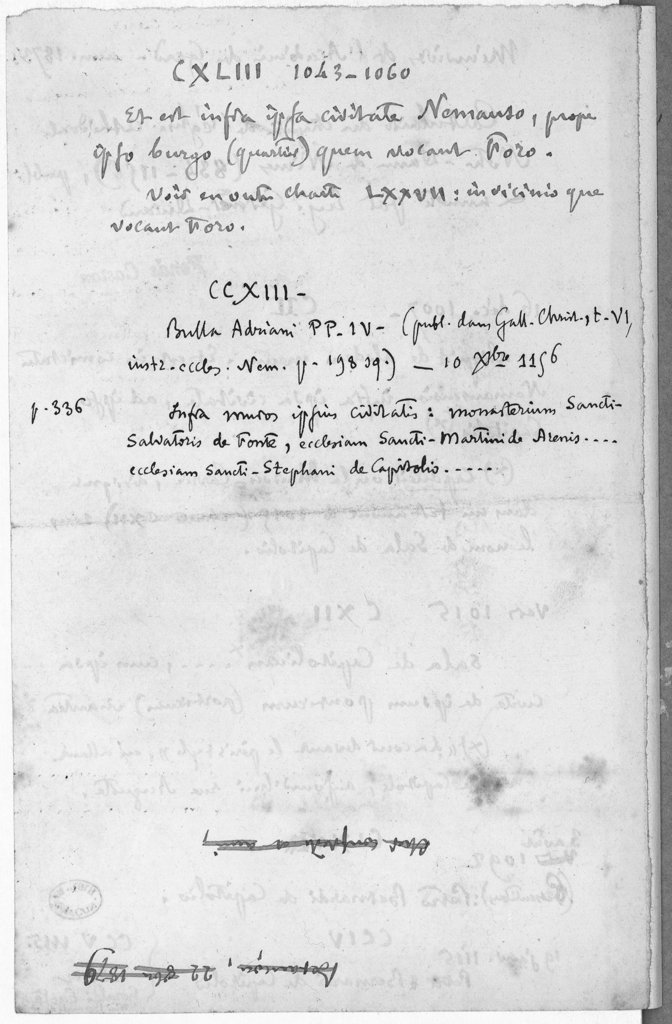 CXLIII 1043-1060
Et est infra ipsa civitate Nemauso, prope
ipso burgo (quartier) quem vocant Foro.
Voir en outre charte LXXVII: in vicinio que
vocant Foro.
CCXIII-
Bulla Adriani PP. IV- (publ. dans Gall. Christ., t. VI,
instr. eccles. Nem. p. 198 sq.) — 10 Xbre 1156
p. 336
Infra muros ipsius civitatis: monasterium Sancti-
Salvatoris de Fonte, ecclesiam Sancti-Martini de Arenis....
ecclesiam Sancti-Stephani de Capitolis.....
22